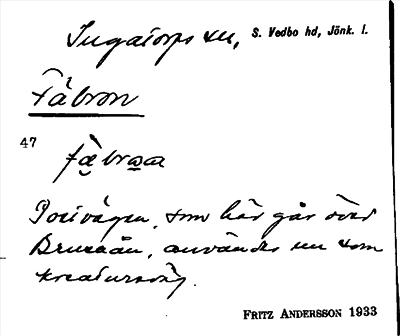 Ingatorps sn, S. Vedbo hd, Jönk. l.
Fäbron
47
som här går över
Brusaån, användes nu som
kreatursväg.
FRITZ ANDERSSON 1933